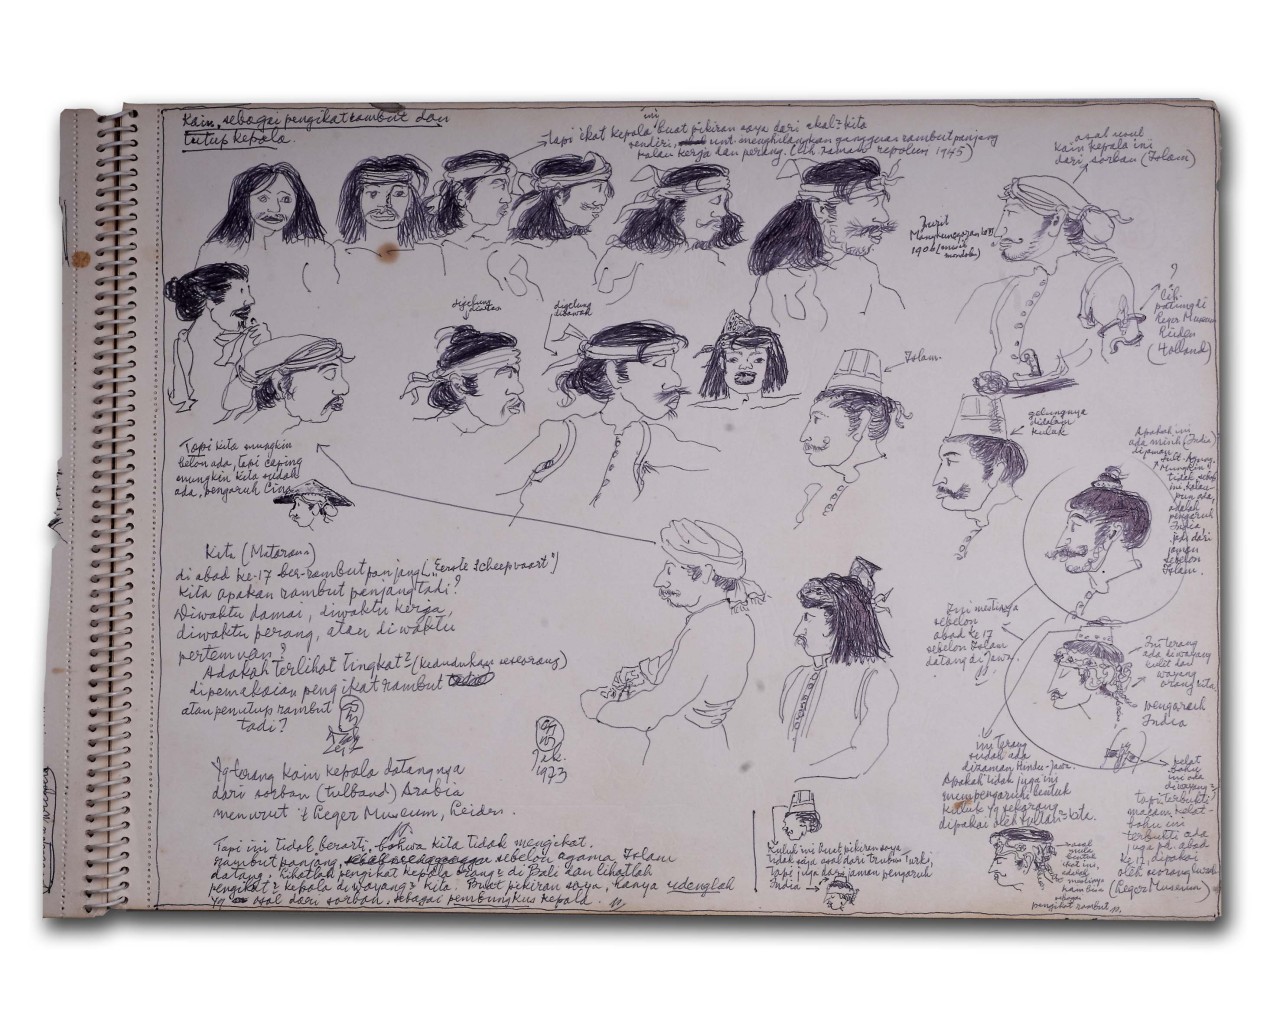 Kain, sebagai pengikat rambut dan
tutup kepala.
ini
tapi ikat kepala buat pikiran saya dari akal2 kita
sendiri, unt. menghilangkan gangguan rambut panjang
kalau kerja dan perang. (lih zaman repolusi 1945)
asal usul
kain kepala ini
dari sorban (Islam)
Mangkunegaran
1906
?
Lih.
Leger Museum
(Holland)
digelung
diatas
digelung
dibawah
Islam
gelungnya
didalam
kuluk
Tapi kita mungkin
belon ada, tapi caping
mungkin kita sudah
ada, pengaruh Cina
Apakah ini
ada misih (India)
dijaman
Sult. Agung.
Mungkin
tidak sebab
ini, kalau
pun ada,
adalah
pengaruh
India
jadi dari
jaman
sebelon
Islam.
Kita (Mataram)
di abad ke-17 ber-rambut panjang (,,Eerste Scheepvaart")
kita apakan rambut panjang tadi?
Diwaktu damai, diwaktu kerja,
diwaktu perang, atau diwaktu
pertemuan?
Adakah terlihat tingkat2 (kedudukan seseorang)
dipemakaian pengikat rambut
atau penutup rambut
tadi?
Jak.
1973
Ini mestinya
sebelon
abad ke 17
sebelon Islam
datang di Jawa.
Ini terang
ada diwayang
kulit dan
wayang
orang kita
pengaruh
India
ini terang
sudah ada
dizaman Hindu-Jawa.
Apakah tidak juga ini
mempengaruhi bentuk
kuluk yg sekarang
dipakai oleh sultan2 kita.
pelat
bahu
ini ada
diwayang2
tapi terbukti
macam pelat-
bahu ini
terbukti ada
juga pd. abad
ke 17, dipakai
oleh seorang
(Leger Museum)
Yg terang kain kepala datangnya
dari sorban (tulband) Arabia
menurut 't Leger Museum, Leiden.
Tapi ini tidak berarti, bahwa kita tidak mengikat
rambut panjang, sebelon agama Islam
datang. Lihatlah pengikat kepala orang2 di Bali dan lihatlah
pengikat2 kepala diwayang2 kita. Buat pikiran saya, hanya udenglah
yg asal dari sorban, sebagai pembungkus kepala.
Kuluk ini buat pikiran saya
tidak saja asal dari Turki,
tapi juga dari jaman pengaruh
India
asal
mula
bentuk
ikat ini,
adalah
mestinya
sebagai
pengikat rambut